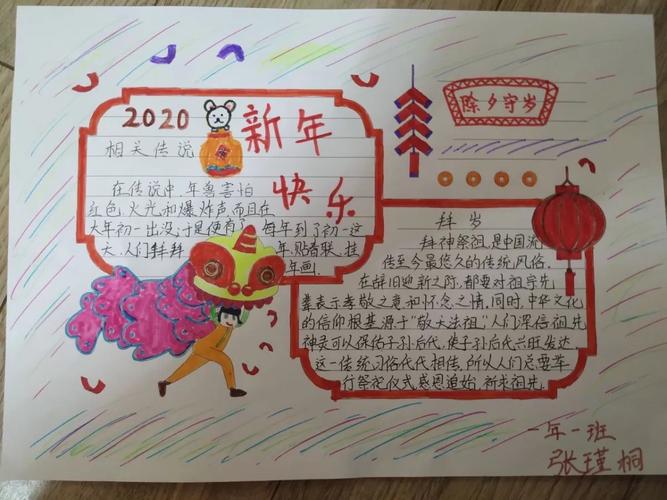 2020
新年
快乐
相关传说
在传说中,年兽害怕
红色,火光和爆炸声,而且在
大年初一出没,于是便有了每年到了初一这
天,人们拜拜
年,贴春联,挂
年画.
除夕守岁
拜岁
拜神祭祖,是中国流
传至今最悠久的传统风俗.
在辞旧迎新之际,都要对祖宗先
辈表示孝敬之意和怀念之情,同时,中华文化
的信仰根基源于"敬天法祖",人们深信祖先
神灵可以保佑子孙后代,使子孙后代兴旺发达
这一传统习俗代代相传,所以人们总要举
行祭祀仪式,感恩追始,祈求祖先.
一年一班
张瑾桐